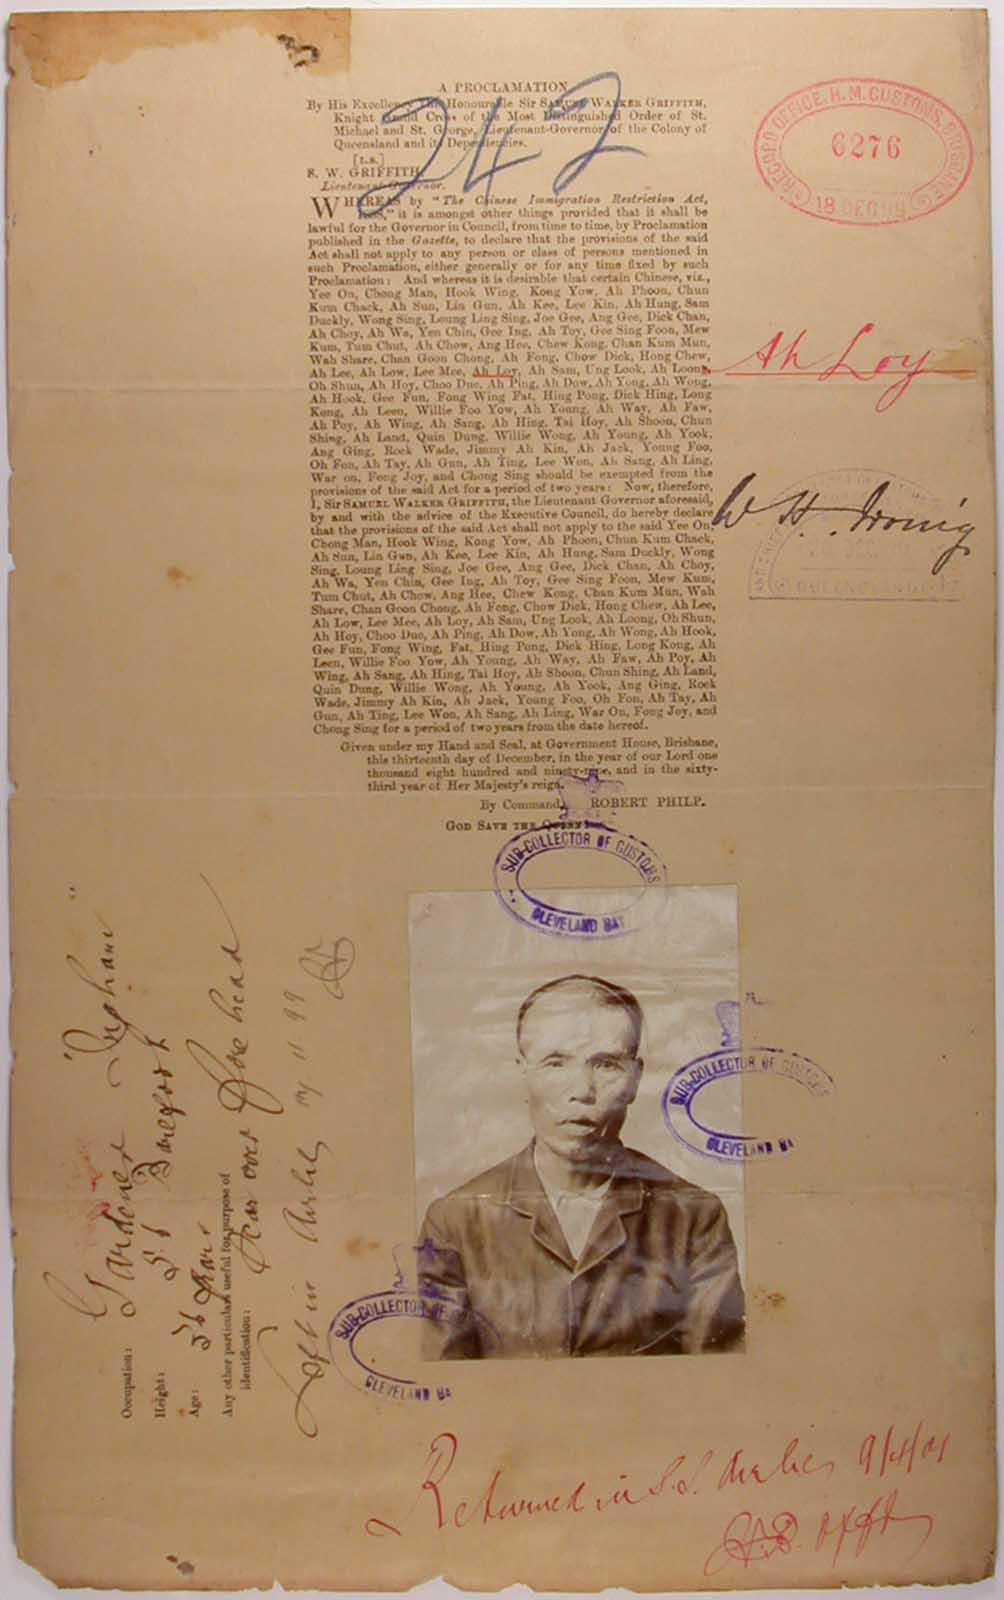 A PROCLAMATION
By His Excellency The Honourable Sir SAMUEL WALKER GRIFFITH,
Knight Grand Cross of the Most Distinguished Order of St.
Michael and St. George, Lieutenant-Governor of the Colony of
Queensland and its Dependencies.
[L.S.]
S. W. GRIFFITH,
Lieutenant-Governor.
WHEREAS by "The Chinese Immigration Restriction Act,
1888," it is amongst other things provided that it shall be
lawful for the Governor in Council, from time to time, by Proclamation
published in the Gazette, to declare that the provisions of the said
Act shall not apply to any person or class of persons mentioned in
such Proclamation, either generally or for any time fixed by such
Proclamation: And whereas it is desirable that certain Chinese, viz.,
Yee On, Chong Man, Hook Wing, Kong Yow, Ah Phoon, Chun
Kum Chack, Ah Sun, Lin Gun, Ah Kee, Lee Kin, Ah Hung, Sam
Duckly, Wong Sing, Leung Ling Sing, Joe Gee, Ang Gee, Dick Chan,
Ah Choy, Ah Wa, Yen Chin, Gee Ing, Ah Toy, Gee Sing Foon, Mew
Kum, Tum Chut, Ah Chow, Ang Hee, Chew Kong, Chan Kum Mun,
Wah Share, Chan Goon Chong, Ah Fong, Chow Dick, Hong Chew,
Ah Lee, Ah Low, Lee Mee, Ah Loy, Ah Sam, Ung Look, Ah Loong,
Oh Shun, Ah Hoy, Choo Duc, Ah Ping, Ah Dow, Ah Yong, Ah Wong,
Ah Hook, Gee Fun, Fong Wing Fat, Hing Pong, Dick Hing, Long
Kong, Ah Leen, Willie Foo Yow, Ah Young, Ah Way, Ah Faw,
Ah Poy, Ah Wing, Ah Sang, Ah Hing, Tai Hoy, Ah Shoon, Chun
Shing, Ah Land, Quin Dung, Willie Wong, Ah Young, Ah Yook,
Ang Ging, Rock Wade, Jimmy Ah Kin, Ah Jack, Young Foo,
Oh Fon, Ah Tay, Ah Gun, Ah Ting, Lee Won, Ah Sang, Ah Ling,
War on, Fong Joy, and Chong Sing should be exempted from the
provisions of the said Act for a period of two years: Now, therefore,
I, Sir SAMUEL WALKER GRIFFITH, the Lieutenant Governor aforesaid,
by and with the advice of the Executive Council, do hereby declare
that the provisions of the said Act shall not apply to the said Yee On,
Chong Man, Hook Wing, Kong Yow, Ah Phoon, Chun Kum Chack,
Ah Sun, Lin Gun, Ah Kee, Lee Kin, Ah Hung, Sam Duckly, Wong
Sing, Loung Ling Sing, Joe Gee, Ang Gee, Dick Chan, Ah Choy,
Ah Wa, Yen Chin, Gee Ing, Ah Toy, Gee Sing Foon, Mew Kum,
Tum Chut, Ah Chow, Ang Hee, Chew Kong, Chan Kum Mun, Wah
Share, Chan Goon Chong, Ah Fong, Chow Dick, Hong Chew, Ah Lee,
Ah Low, Lee Mee, Ah Loy, Ah Sam, Ung Look, Ah Loong, Oh Shun,
Ah Hoy, Choo Duc, Ah Ping, Ah Dow, Ah Yong, Ah Wong, Ah Hook,
Gee Fun, Fong Wing, Fat, Hing Pong, Dick Hing, Long Kong, Ah
Leen, Willie Foo Yow, Ah Young, Ah Way, Ah Faw, Ah Poy, Ah
Wing, Ah Sang, Ah Hing, Tai Hoy, Ah Shoon, Chun Shing, Ah Land,
Quin Dung, Willie Wong, Ah Young, Ah Yook, Ang Ging, Rock
Wade, Jimmy Ah Kin, Ah Jack, Young Foo, Oh Fon, Ah Tay, Ah
Gun, Ah Ting, Lee Won, Ah Sang, Ah Ling, War On, Fong Joy, and
Chong Sing for a period of two years from the date hereof.
Given under my Hand and Seal, at Government House, Brisbane,
this thirteenth day of December, in the year of our Lord one
thousand eight hundred and ninety-nine, and in the sixty-
third year of Her Majesty's reign.
By Command, ROBERT PHILP.
GOD SAVE THE QUEEN!
242
RECORD OFFICE, H.M. CUSTOMS, BRISBANE
6276
18 DEC 99
Ah Loy
W H
QUEENSLAND
SUB-COLLECTOR OF CUSTOMS
CLEVELAND BAY
SUB-COLLECTOR OF CUSTOMS
CLEVELAND BA
SUB-COLLECTOR OF
CLEVELAND BA
Occupation: Gardener Ingham
Height: 5.5 Barefoot
Age: 56 Years
Any other particulars useful for purpose of
identification: Scar over Forehead
Left in Airlie 11.99
Returned in S.S. Airlie 9/4/01